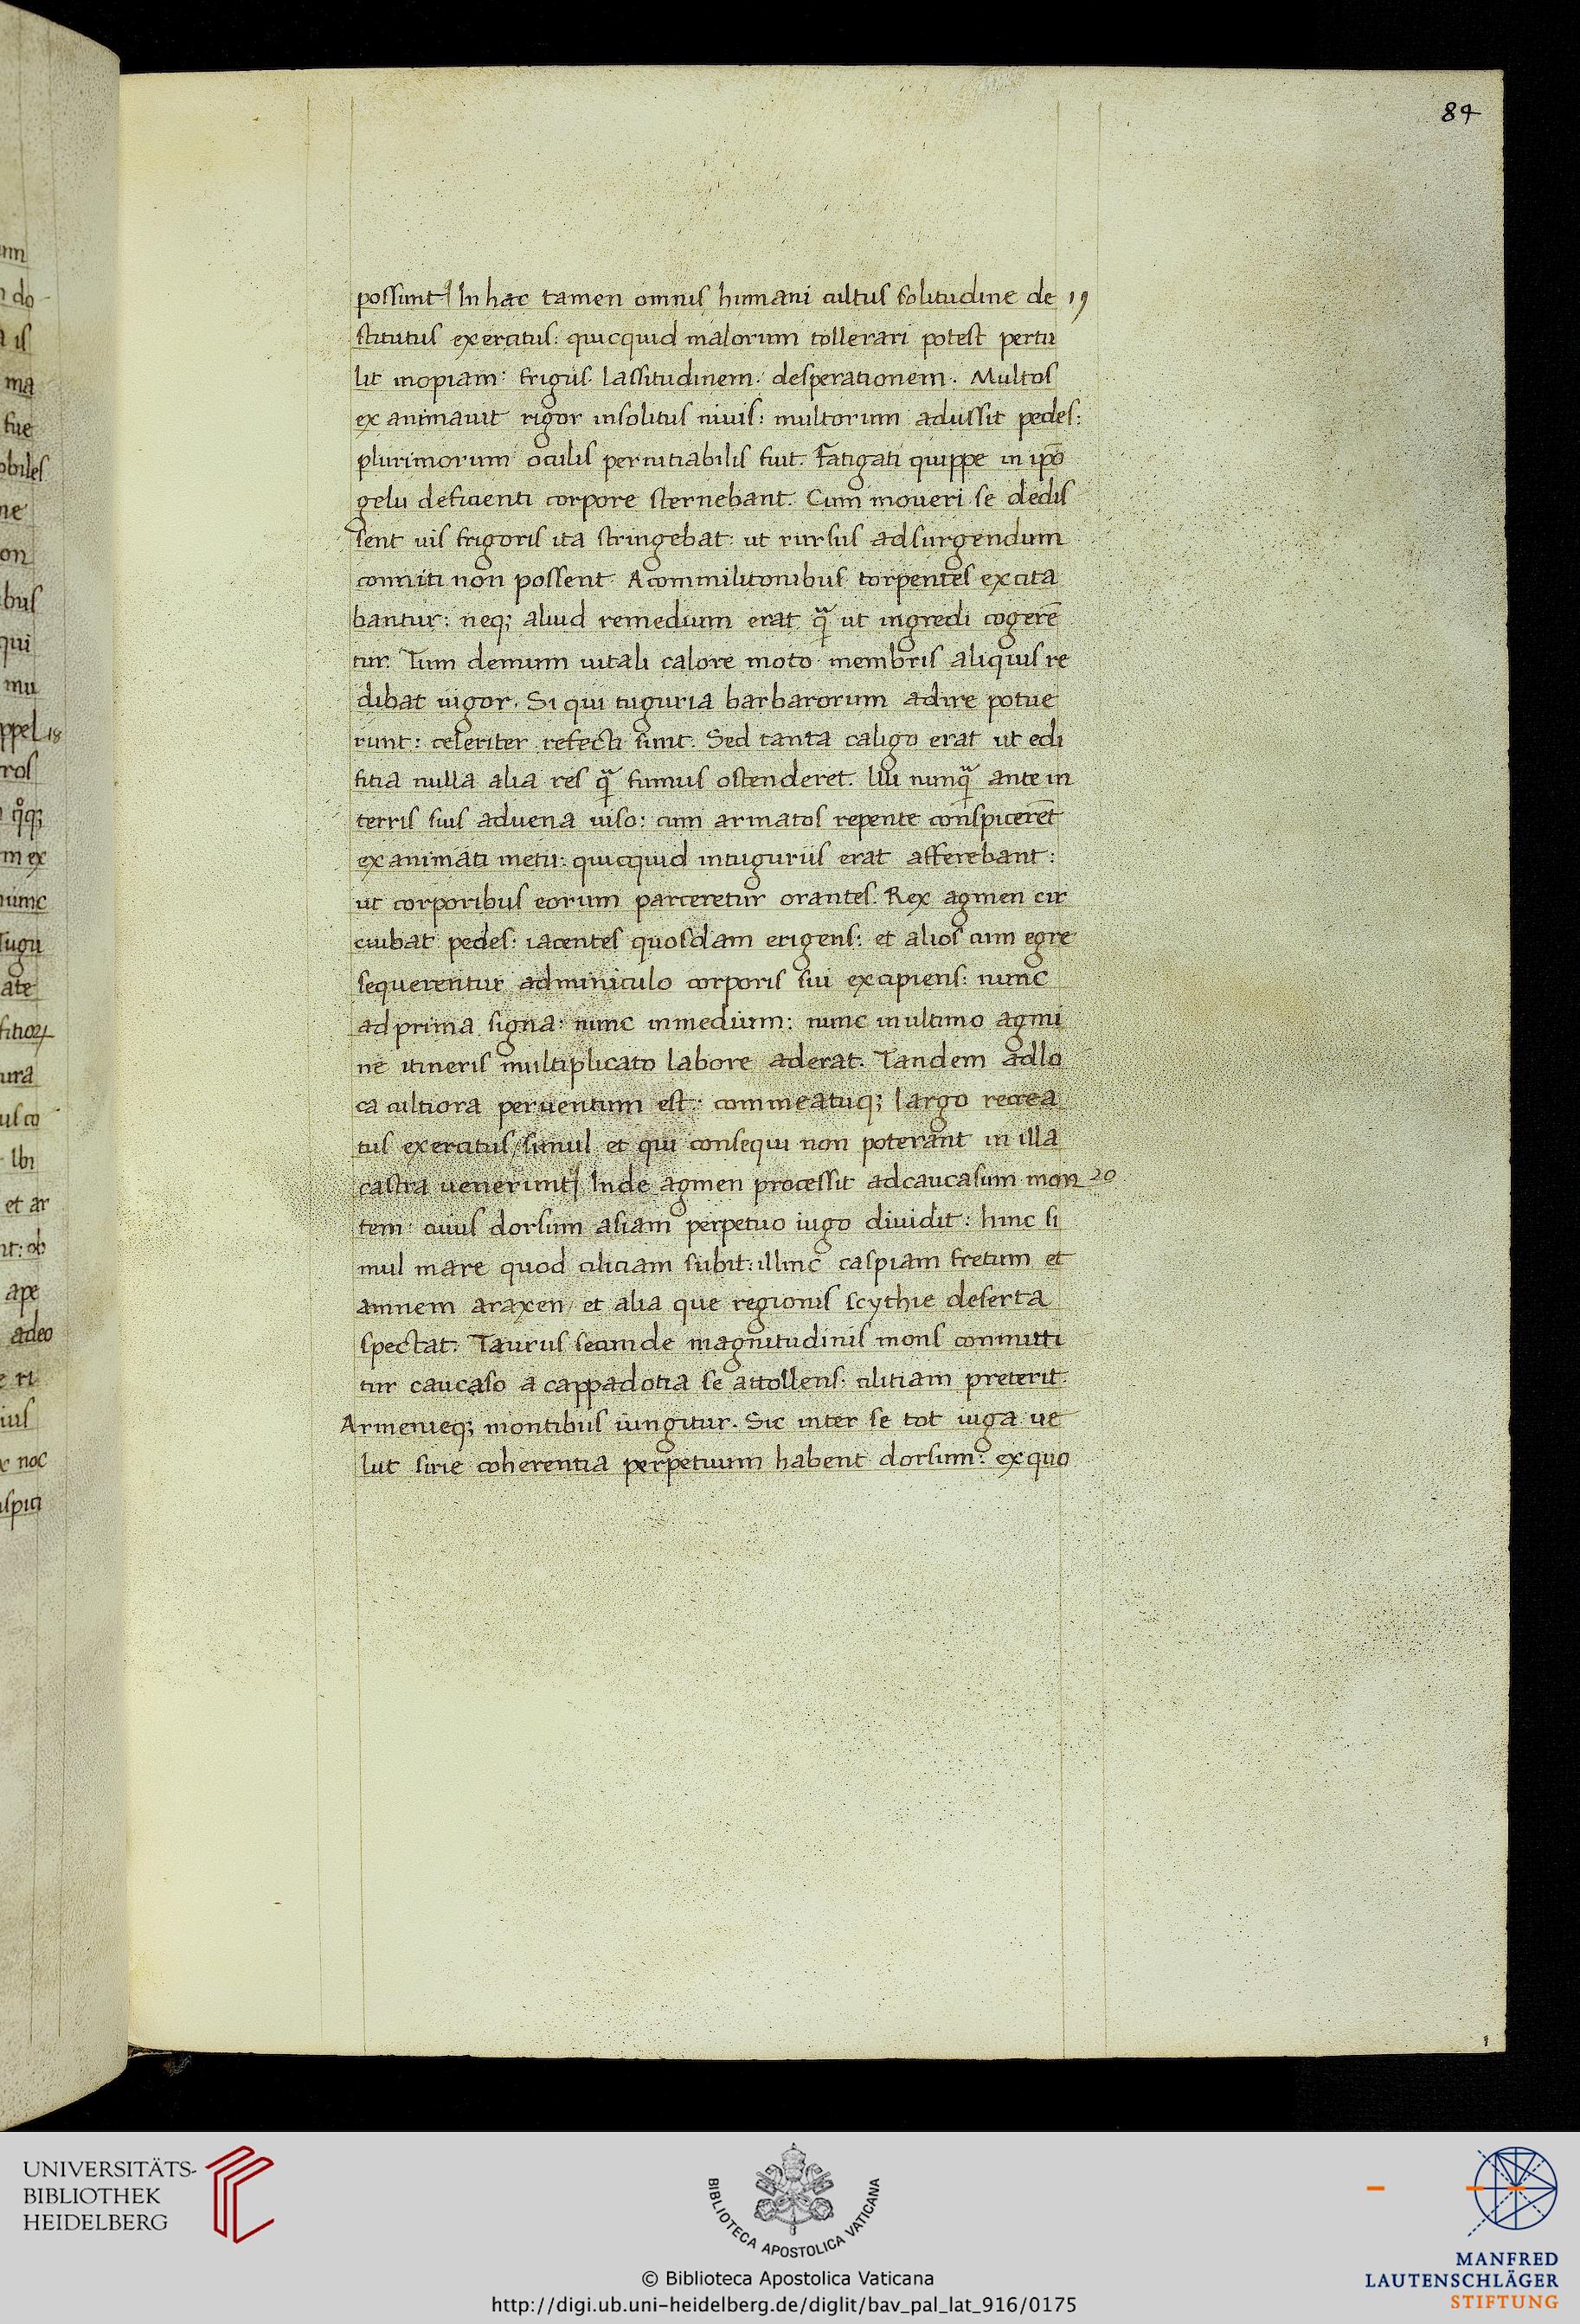 84
possunt In hac tamen omnis humani cultus solitudine de 19
stitutus exercitus: quicquid malorum tollerari potest pertu
lit inopiam: frigus. lassitudinem. desperationem. Multos
exanimauit rigor insolitus niuis: multorum adussit pedes:
plurimorum oculis pernitiabilis fuit. Fatigati quippe in ip̄o
gelu deficienti corpore sternebant. Cum moueri se dedis
sent uis frigoris ita stringebat: ut rursus adsurgendum
conniti non possent. A commilitonibus torpentes excita
bantur: neq; aliud remedium erat qͣ ut ingredi cogerē
tur. Tum demum uitali calore moto membris aliquis re
dibat uigor. Si qui tuguria barbarorum adire potue
runt: celeriter refecti sunt. Sed tanta caligo erat ut edi
fitia nulla alia res qͣ fumus ostenderet. Illi nunqͣ ante in
terris suis aduena uiso: cum armatos repente conspicerēt
exanimati metu: quicquid intuguriis erat afferebant:
ut corporibus eorum parceretur orantes. Rex agmen cir
cuibat pedes: iacentes quosdam erigens: et alios cum egre
sequerentur adminiculo corporis sui excipiens: nunc
ad prima signa: nunc inmedium: nunc inultimo agmi
ne itineris multiplicato labore aderat. Tandem adlo
ca cultiora peruentum est: commeatuq; largo recrea
tus exercitus/simul et qui consequi non poterant in illa
castra uenerunt Inde agmen processit adcaucasum mon 20
tem: cuius dorsum asiam perpetuo iugo diuidit: hinc si
mul mare quod ciliciam subit: illinc caspiam fretum et
amnem araxen/ et alia que regionis scythie deserta
spectat. Taurus secunde magnitudinis mons committi
tur caucaso a cappadotia se attollens: cilitiam preterit.
Armenieq; montibus iungitur. Sic inter se tot iuga ue
lut sirie coherentia perpetuum habent dorsum: ex quo
1
UNIVERSITÄTS-
BIBLIOTHEK
HEIDELBERG
BIBLIOTECA APOSTOLICA VATICANA
© Biblioteca Apostolica Vaticana
http://digi.ub.uni-heidelberg.de/diglit/bav_pal_lat_916/0175
MANFRED
LAUTENSCHLÄGER
STIFTUNG